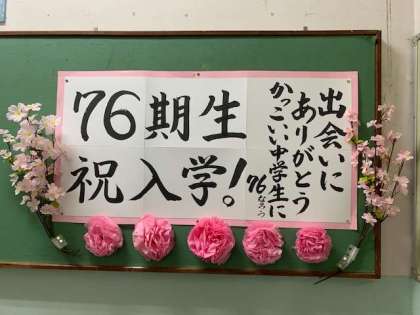 76期生
祝入学!
出会いに
ありがとう
かっこいい中学生に
76なろう